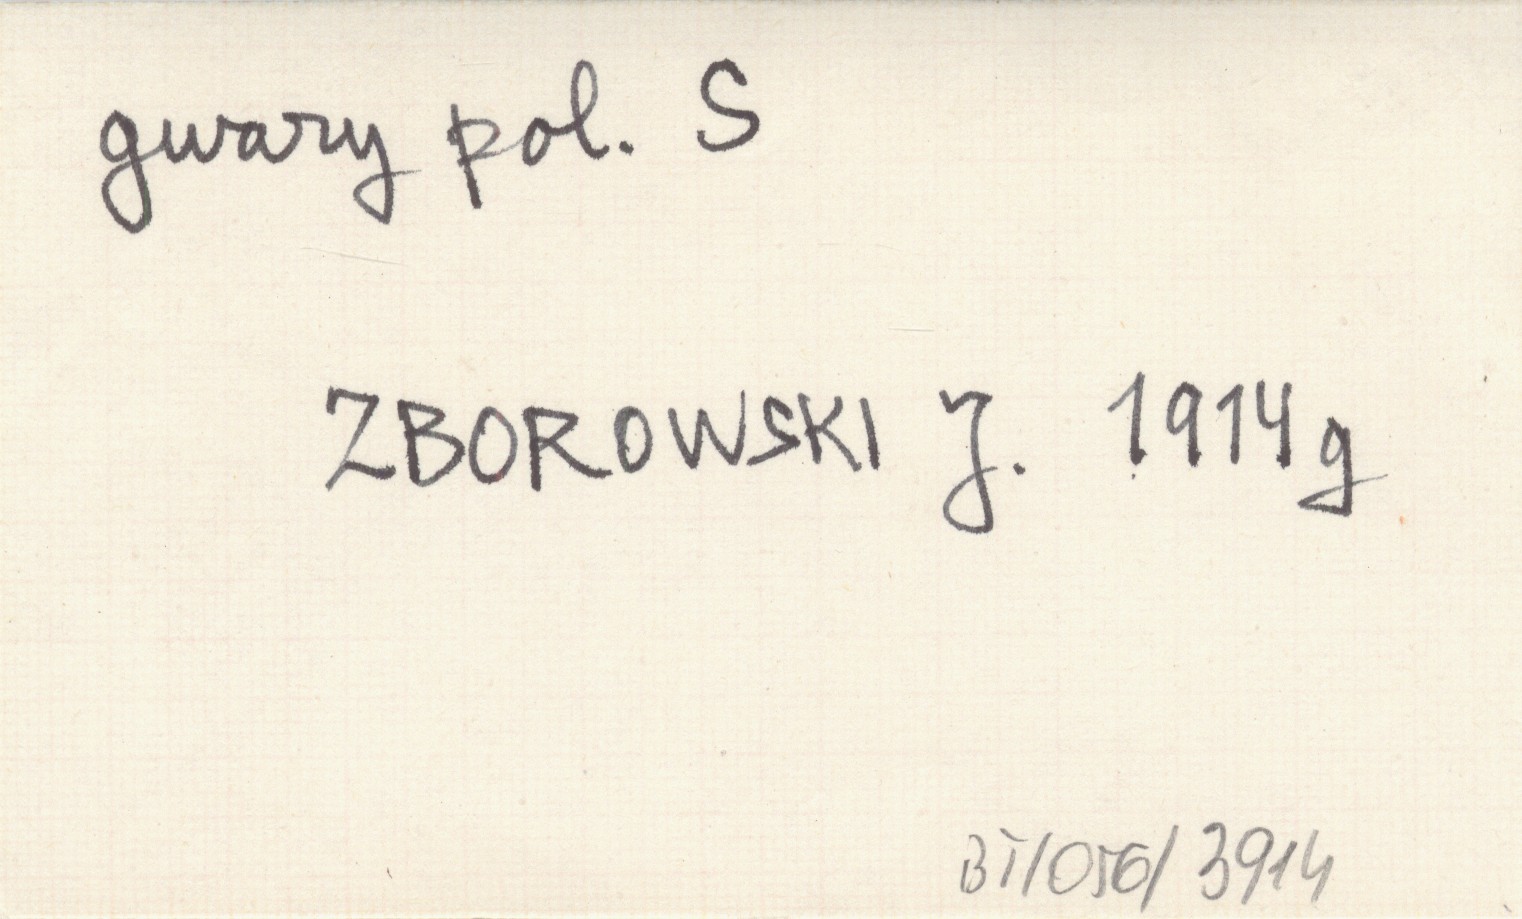 gwary pol. S
ZBOROWSKI J. 1914g
BT/056/3914